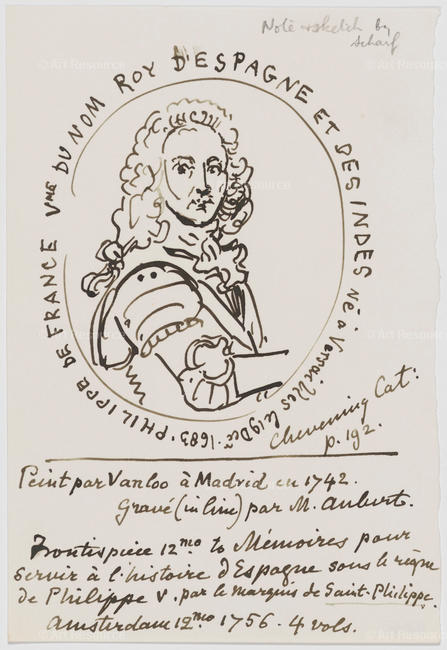 Note & sketch by
Scharf
PHILIPPE DE FRANCE Vme DU NOM ROY D'ESPAGNE ET DES INDES né à Versailles le 19 Decr. 1683.
Chevening Cat:
p. 192.
Peint par Vanloo à Madrid en 1742.
Gravé (in line) par M. Aubert.
Frontispiece 12mo to Mémoires pour
servir à l'histoire d'Espagne sous le règne
de Philippe V. par le marquis de Saint-Philippe
Amsterdam 12mo 1756. 4 vols.
© Art Resource
© Art Resource
© Art Resource